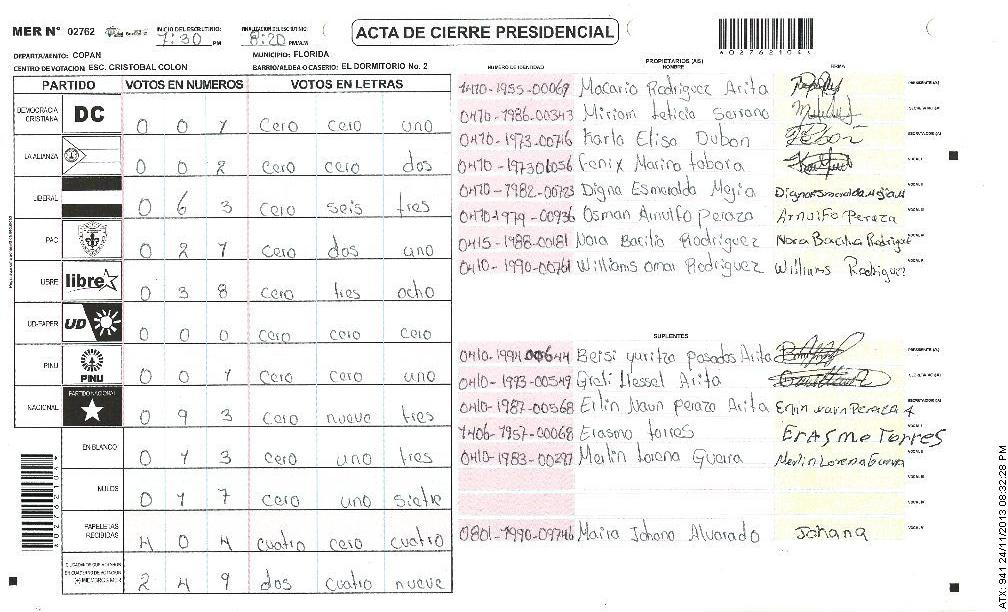 MER Nº 02762 INICIO DEL ESCRUTINIO: 7:30 PM FINALIZACION DEL ESCRUTINIO: 8:20 PM/A.M ACTA DE CIERRE PRESIDENCIAL
DEPARTAMENTO: COPAN MUNICIPIO: FLORIDA
CENTRO DE VOTACION: ESC. CRISTOBAL COLON BARRIO/ALDEA O CASERIO: EL DORMITORIO No. 2
PARTIDO VOTOS EN NUMEROS VOTOS EN LETRAS
DEMOCRACIA CRISTIANA DC 0 0 1 cero cero uno
LA ALIANZA 0 0 2 cero cero dos
LIBERAL 0 6 3 cero seis tres
PAC 0 2 1 cero dos uno
LIBRE libre 0 3 8 cero tres ocho
UD-FAPER UD 0 0 0 cero cero cero
PINU PINU 0 0 1 cero cero uno
NACIONAL PARTIDO NACIONAL 0 9 3 cero nueve tres
EN BLANCO 0 1 3 cero uno tres
NULOS 0 1 7 cero uno siete
PAPELETAS RECIBIDAS 4 0 4 cuatro cero cuatro
CIUDADANOS QUE VOTARON EN CUADERNO DE VOTACION (+) MIEMBROS MER 2 4 9 dos cuatro nueve
0276210
PROPIETARIOS (AS)
NUMERO DE IDENTIDAD NOMBRE FIRMA
1410-1955-00069 Macario Rodriguez Arita PRESIDENTE (A)
0410-1986-00343 Miriam leticia Soriano SECRETARIO (A)
0410-1973-00716 Karla Elisa Dubon ESCRUTADOR (A)
0410-197300056 Fenix Marina tabora VOCAL I
0410-1982-00723 Digna Esmeralda Mejia Digna Esmeralda Mejia M VOCAL II
0410-1979-00936 Osman Arnulfo Peraza Arnulfo Peraza VOCAL III
0415-1988-00181 Nora Bacilia Rodriguez Nora Bacilia Rodriguez VOCAL IV
0410-1990-00761 Williams omar Rodriguez Williams Rodriguez VOCAL V
SUPLENTES
0410-1994-00644 Beisi yuritza posados Arita PRESIDENTE (A)
0410-1993-00549 Greti Hessel Arita SECRETARIO (A)
0410-1987-00568 Erlin Naun peraza Arita Erlin naun Peraza A ESCRUTADOR (A)
1406-1957-00068 Erasmo torres Erasmo Torres VOCAL I
0410-1983-00297 Merlin lorena Guerra Merlin Lorena Guerra VOCAL II
VOCAL III
VOCAL IV
0801-1990-09746 Maira Johana Alvarado Johana VOCAL V
ATX: 941 24/11/2013 08:32:28 PM